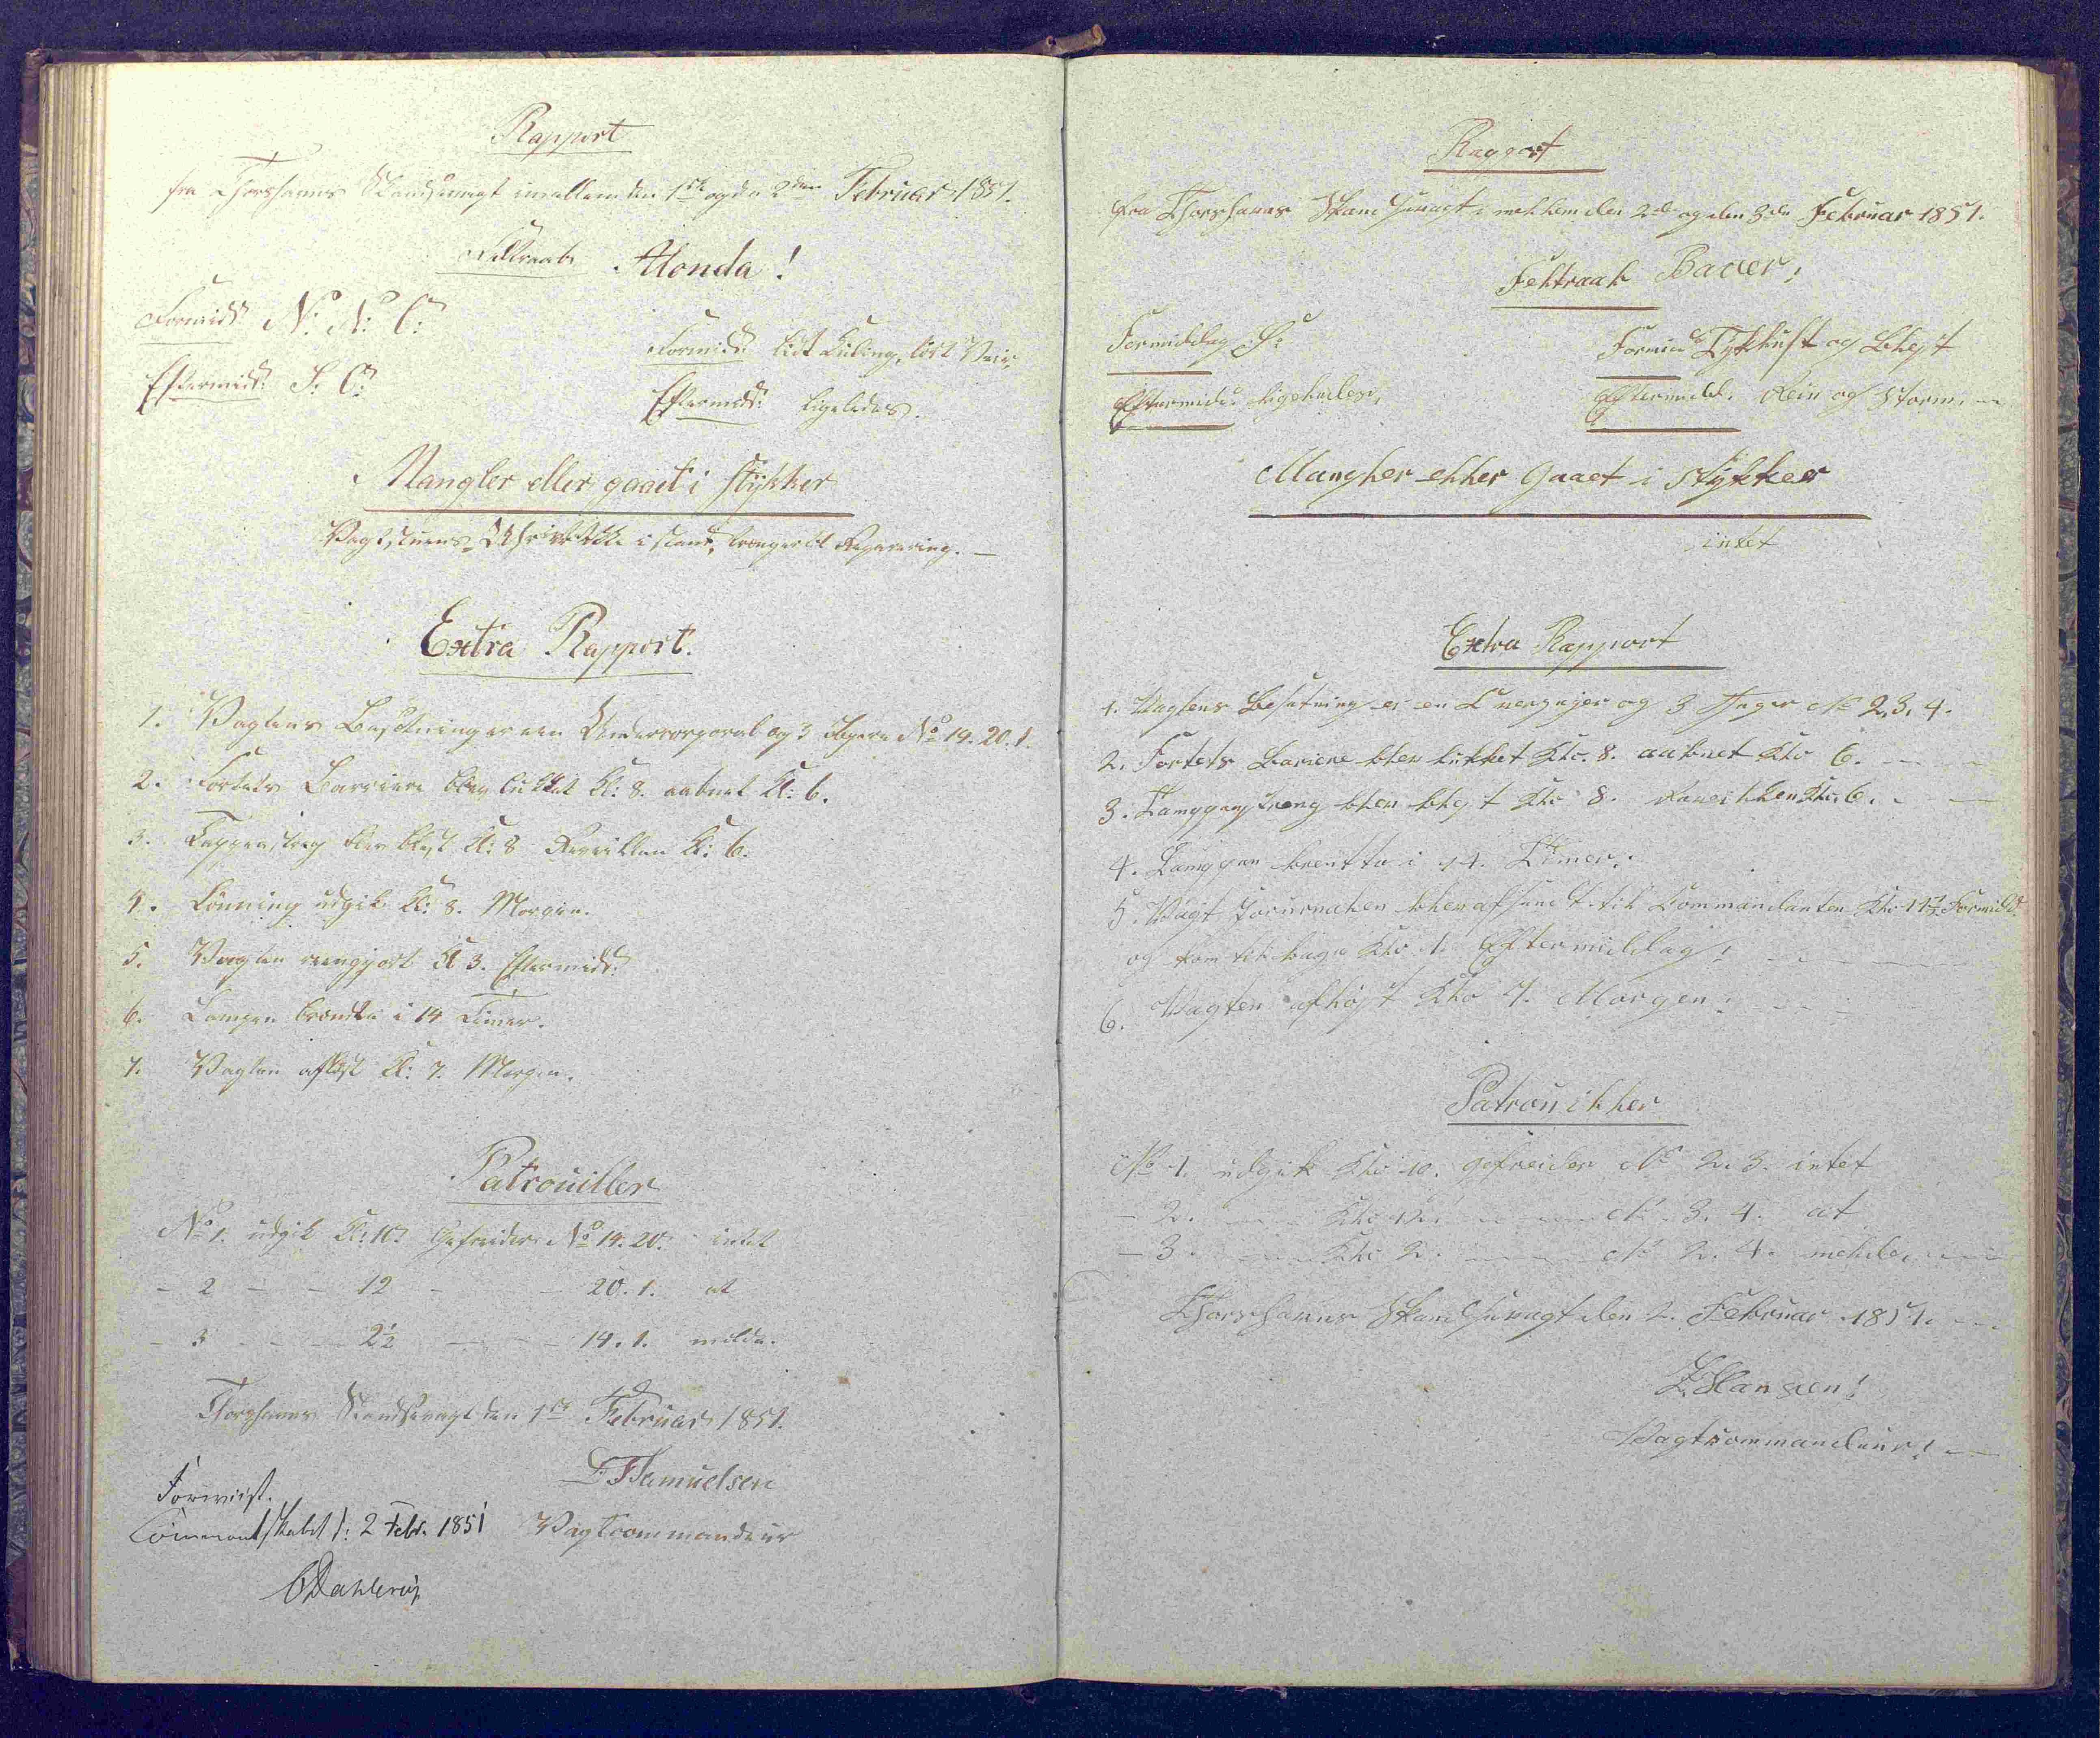 Rapport
fra Thorshavns Skandsevagt imellem den 1ste og den 2den Februar 1851.
Feltraab Alonda!
Formidd: N: N: O:
Eftermidd: S. O:
Formidd: lidt Kuling, tört Veir,
Eftermidd: ligeledes.
Mangler eller gaaet i stykker
Vagtstuens Uhr er ikke i stand, trænger til Reparering. —
Extra Rapport.
1. Vagtens Besætning er een Undercorporal og 3 Jægere No 19. 20. 1.
2. Fortets Barriere blev lukket Kl: 8. aabnet Kl: 6.
3. Tappenstreg blev blæst Kl: 8 Reveillen Kl: 6.
4. Lönning udgik Kl: 8. Morgen.
5. Vagten reengjort Kl 3. Eftermidd:
6. Lampen brændte i 14 Timer.
7. Vagten aflöst Kl: 7. Morgen.
Patrouiller
No 1. udgik Kl: 10. Gefreider No 19. 20. intet
- 2 - - 12 - - 20. 1. at
- 3 - - 2½ - - 19. 1. melde.
Thorshavns Skandsevagt den 1ste Februar 1851.
Samuelsen
Vagtcommandeur
Foreviist.
Commandtskabet d: 2 Febr. 1851
Dahlerup
Rapport
fra Thorshavns Skandsevagt imellem den 2de og den 3de Februar 1851.
Feltraab Bauer,
Formiddag S:
Eftermidd. ligeledes,
Formidd Tykluft og Blest
Eftermidd. Rein og Storm. —
Mangler eller Gaaet i Stykker
intet
Extra Rapport
1. Vagtens Besatning er en og 3 Jæger No 2, 3, 4.
2. Fortets Bariere blev lukket Klo. 8. aabnet Klo 6. —
3. blev blest Klo 8. Raveillen Klo. 6. —
4. Lamppen brentte i 14. Timer.
5. Vagt Jorurnalen blev afsendt til Commandanten Klo 11½ Formidd.
og kom tilbage Klo 1. Eftermiddag! —
6. Vagten afløst Klo 7. Morgen! —
Patrouiller
No 1. udgik Klo 10. gefreider No 2. 3. intet
- 2. — Klo 12. — No 3. 4. at
- 3. — Klo 2. — No 2. 4. melde, —
Thorshavns Skandsevagt den 2. Februar 1851. —
Hansen!
Vagtkommandeur! —